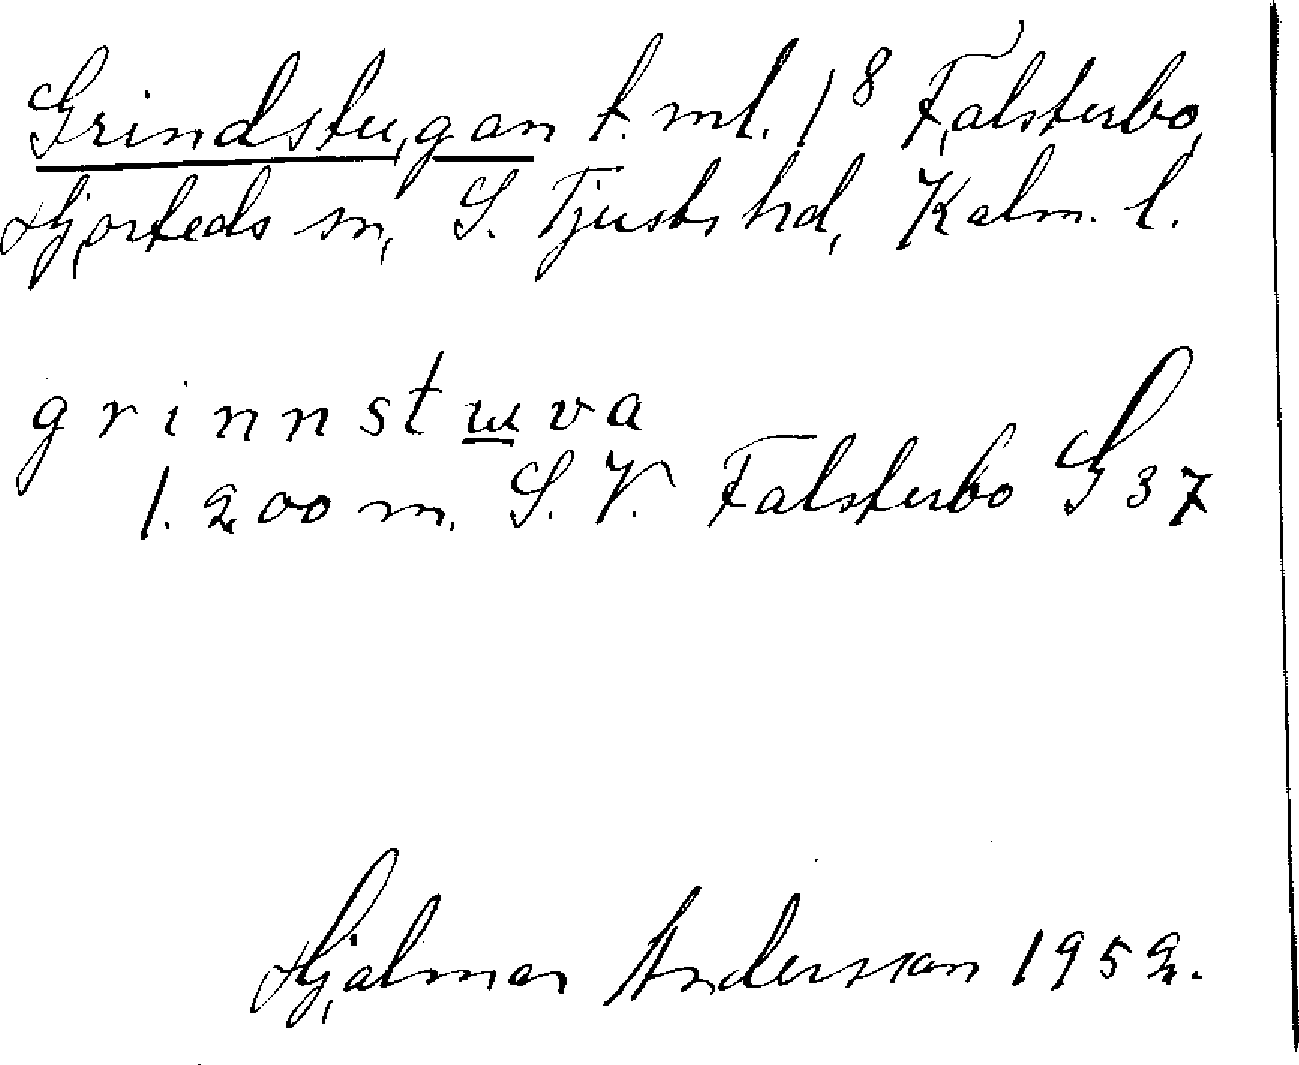 Grindstugan t. ml. 1⁸ Falsterbo,
Hjorteds sn, S. Tjusts hd, Kalm. l.
grinnstuva
1.200 m. S.V. Falsterbo G 37
Hjalmar Andersson 1952.